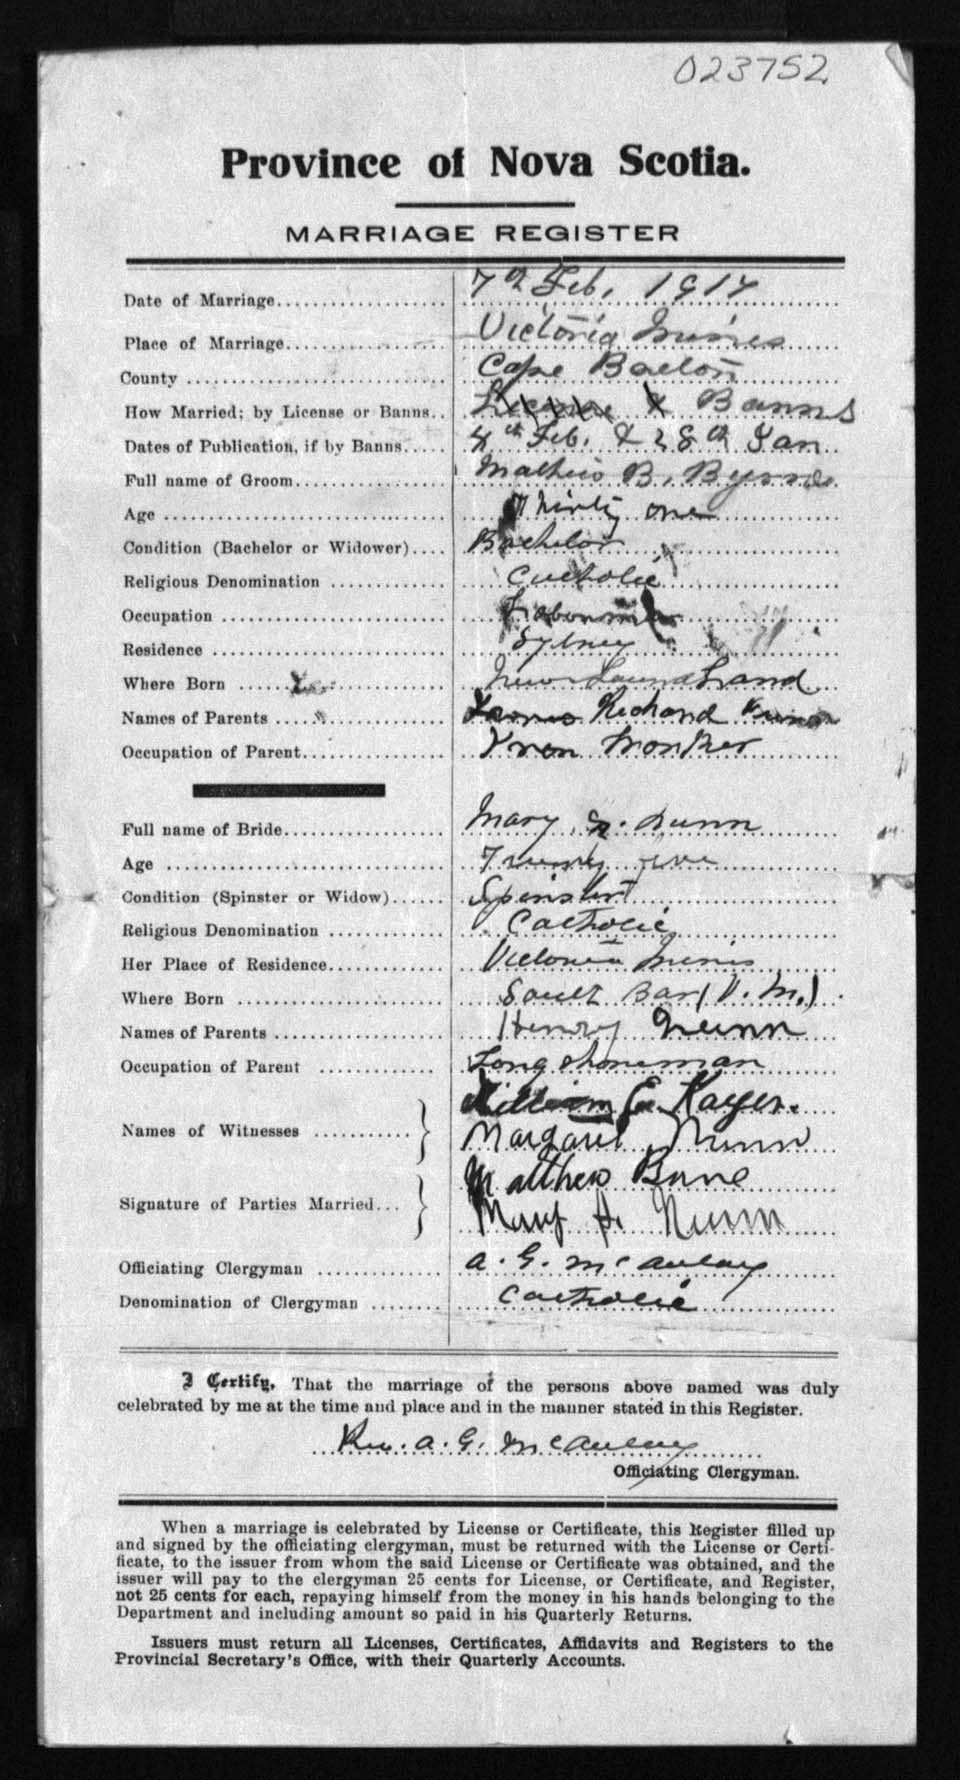 023752
Province of Nova Scotia.
MARRIAGE REGISTER
Date of Marriage 7th Feb, 1917
Place of Marriage Victoria Mines
County Cape Breton
How Married; by License or Banns License Banns
Dates of Publication, if by Banns 4th Feb. & 28th Jan
Full name of Groom B.
Age Thirty one
Condition (Bachelor or Widower) Bachelor
Religious Denomination Catholic
Occupation
Residence Sydney
Where Born New Found Land
Names of Parents Richard
Occupation of Parent Iron Worker
Full name of Bride Mary Nunn
Age Twenty
Condition (Spinster or Widow) Spinster
Religious Denomination Catholic
Her Place of Residence Victoria Mines
Where Born South Bar (V. M.)
Names of Parents Henry Nunn
Occupation of Parent Longshoreman
Names of Witnesses William
Margaret Nunn
Signature of Parties Married Matthew
Mary Nunn
Officiating Clergyman A. G. McAulay
Denomination of Clergyman Catholic
I Certify, That the marriage of the persons above named was duly
celebrated by me at the time and place and in the manner stated in this Register.
Rev. A. G. McAulay
Officiating Clergyman.
When a marriage is celebrated by License or Certificate, this Register filled up
and signed by the officiating clergyman, must be returned with the License or Certi-
ficate, to the issuer from whom the said License or Certificate was obtained, and the
issuer will pay to the clergyman 25 cents for License, or Certificate, and Register,
not 25 cents for each, repaying himself from the money in his hands belonging to the
Department and including amount so paid in his Quarterly Returns.
Issuers must return all Licenses, Certificates, Affidavits and Registers to the
Provincial Secretary's Office, with their Quarterly Accounts.